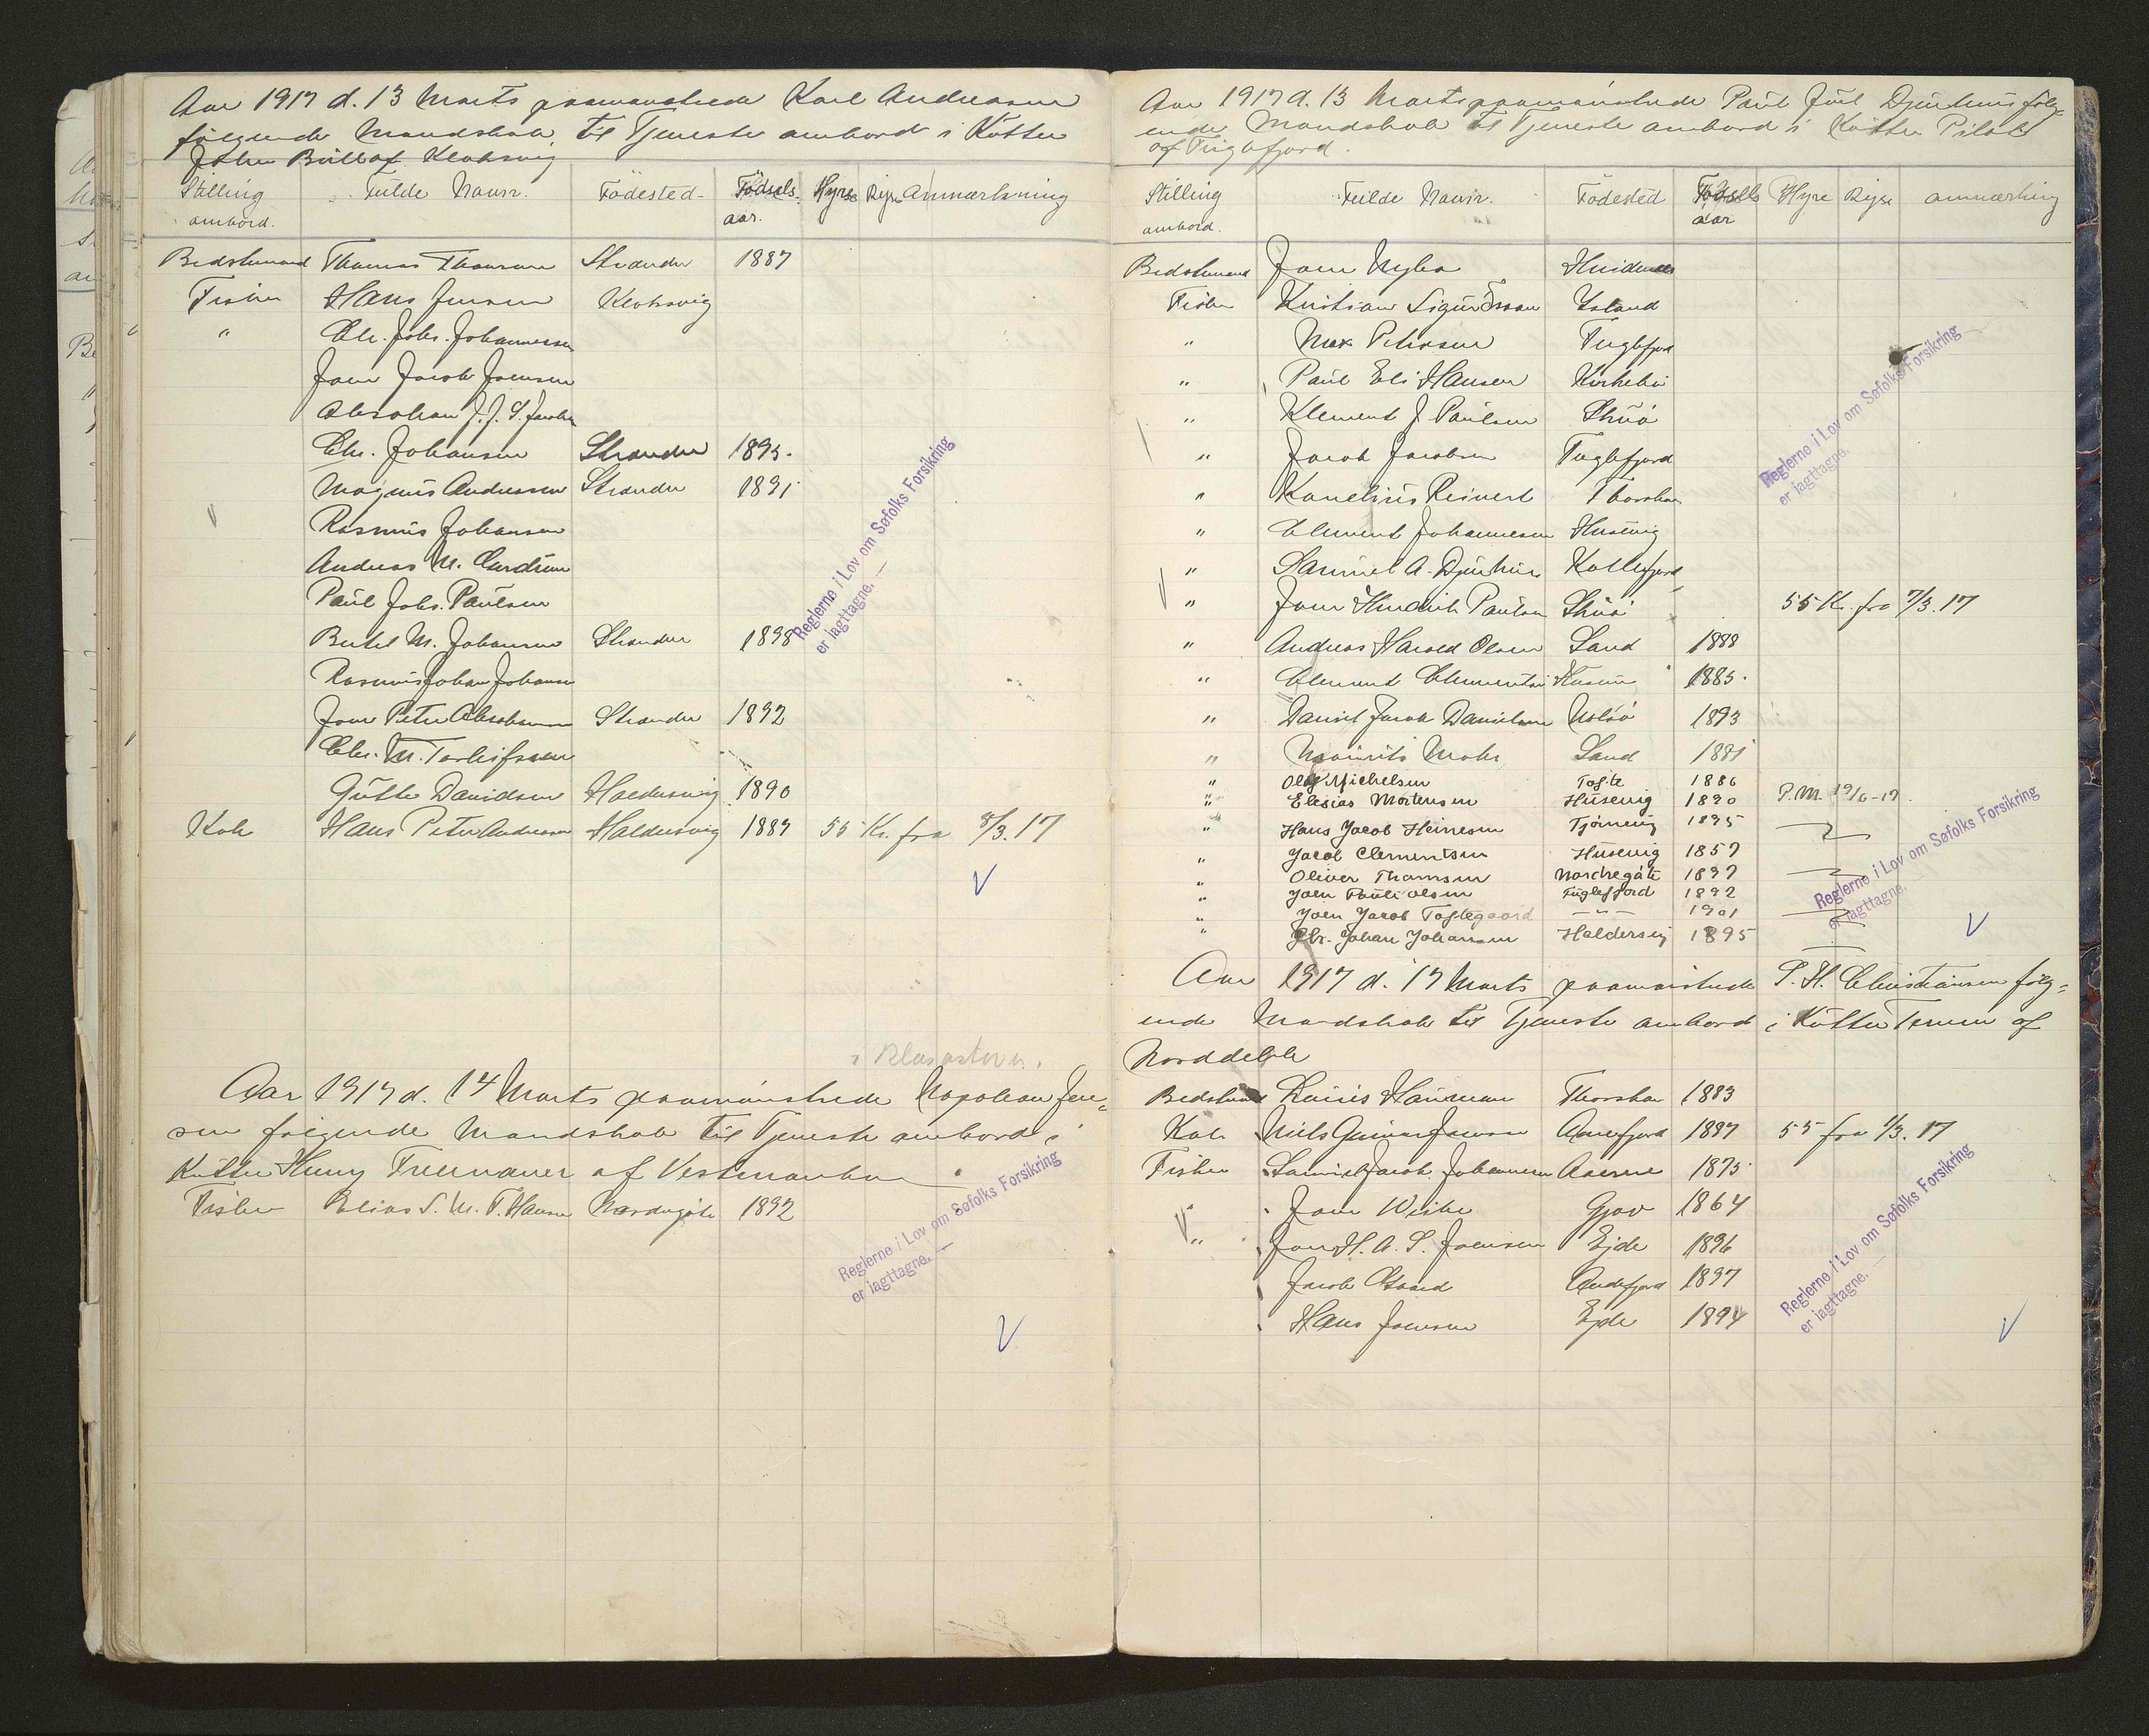 Aar 1917 d. 13 Marts paamønstrede Karl Andreasen
følgende Mandskab til Tjeneste ombord i Kutter
John Bull af Klaksvig
Stilling ombord. Fulde Navn. Fødested. Fødselsaar. Hyre Rejse Anmærkning
Bedstemand Thomas Thomsen Strænder 1887
Fisker Hans Jensen Klaksvig
" Chr. Johs. Johannessen
Joen Jacob Joensen
Absolon J. J. S. Jacobs
Chr. Johansen Strænder 1895.
Magnus Andreasen Strænder 1891
Rasmus Johansen
Andreas M.
Paul Johs. Paulsen
M. Johansen Strænder 1898
Rasmus Johan Johansen
Joen Peter Absolonsen Strænder 1892
Chr. M. Torleifssen
Gutte Davidsen Haldersvig 1890
Kok Hans Peter Andreasen Haldersvig 1887 55 Kr. fra 8/3. 17
Reglerne i Lov om Søfolks Forsikring
er iagttagne. —
Aar 1917 d. 14 Marts paamønstrede Napoleon Jen=
sen følgende Mandskab til Tjeneste ombord i
Kutter Henry Freemaner af Vestmanhavn
Fisker Elias S. M. T. Hansen Nordregøte 1892
Reglerne i Lov om Søfolks Forsikring
er iagttagne. —
Aar 1917 d. 13 Marts paamønstrede Paul Juel Djurhuus følg-
ende Mandskab til Tjeneste ombord i Kutter Pilot
af Fuglefjord.
Stilling ombord. Fulde Navn. Fødested Fødselsaar Hyre Rejse anmærkning
Bedstemand Joen Nybo
Fisker Kristian Sigurdsson Island
" Max Petersen Fuglefjord
" Paul Eli Hansen Kirkebø
" Klement J. Paulsen Skuø
" Jacob Jacobsen Fuglefjord
" Kornelius Reinert Thorshavn
" Clement Johannesen Husevig
" Samuel A. Djurhuus Kollefjord
" Joen Hendrik Paulsen Skuø 55 Kr. fra 7/3. 17
" Andreas Harold Olsen Sand 1888
" Clement Clementsen Husevig 1885.
" Daniel Jacob Danielsen Nolsø 1893
" Mourits Mohr Sand 1881
" Olaf Michelsen Tofte 1886
" Elesias Mortensen Husevig 1890 P.M. 19/6-17.
" Hans Jacob Heinesen Tjørnevig 1895
" Jacob Clementsen Husevig 1857
" Oliver Thomsen Nordregøte 1897
" Joen Pauli Olsen Fuglefjord 1892
" Joen Jacob Toftegaard —"— 1901
" Chr. Johan Johansen Haldersvig 1895
Reglerne i Lov om Søfolks Forsikring
er iagttagne.
Reglerne i Lov om Søfolks Forsikring
er iagttagne.
Aar 1917 d. 17 Marts paamønstrede P. H. Christiansen følg=
ende Mandskab til Tjeneste ombord i Kutter af
Norddeble
Bedstemand Hansen Thorshavn 1883
Kok Niels Joensen Aanefjord 1897 55 fra 1/3. 17
Fisker Samuel Jacob Johannesen 1875
Joen Weihe Gjov 1864
" Joen H. A. S. Joensen Ejde 1896
Jacob 1897
Hans Joensen Ejde 1894
Reglerne i Lov om Søfolks Forsikring
er iagttagne. —